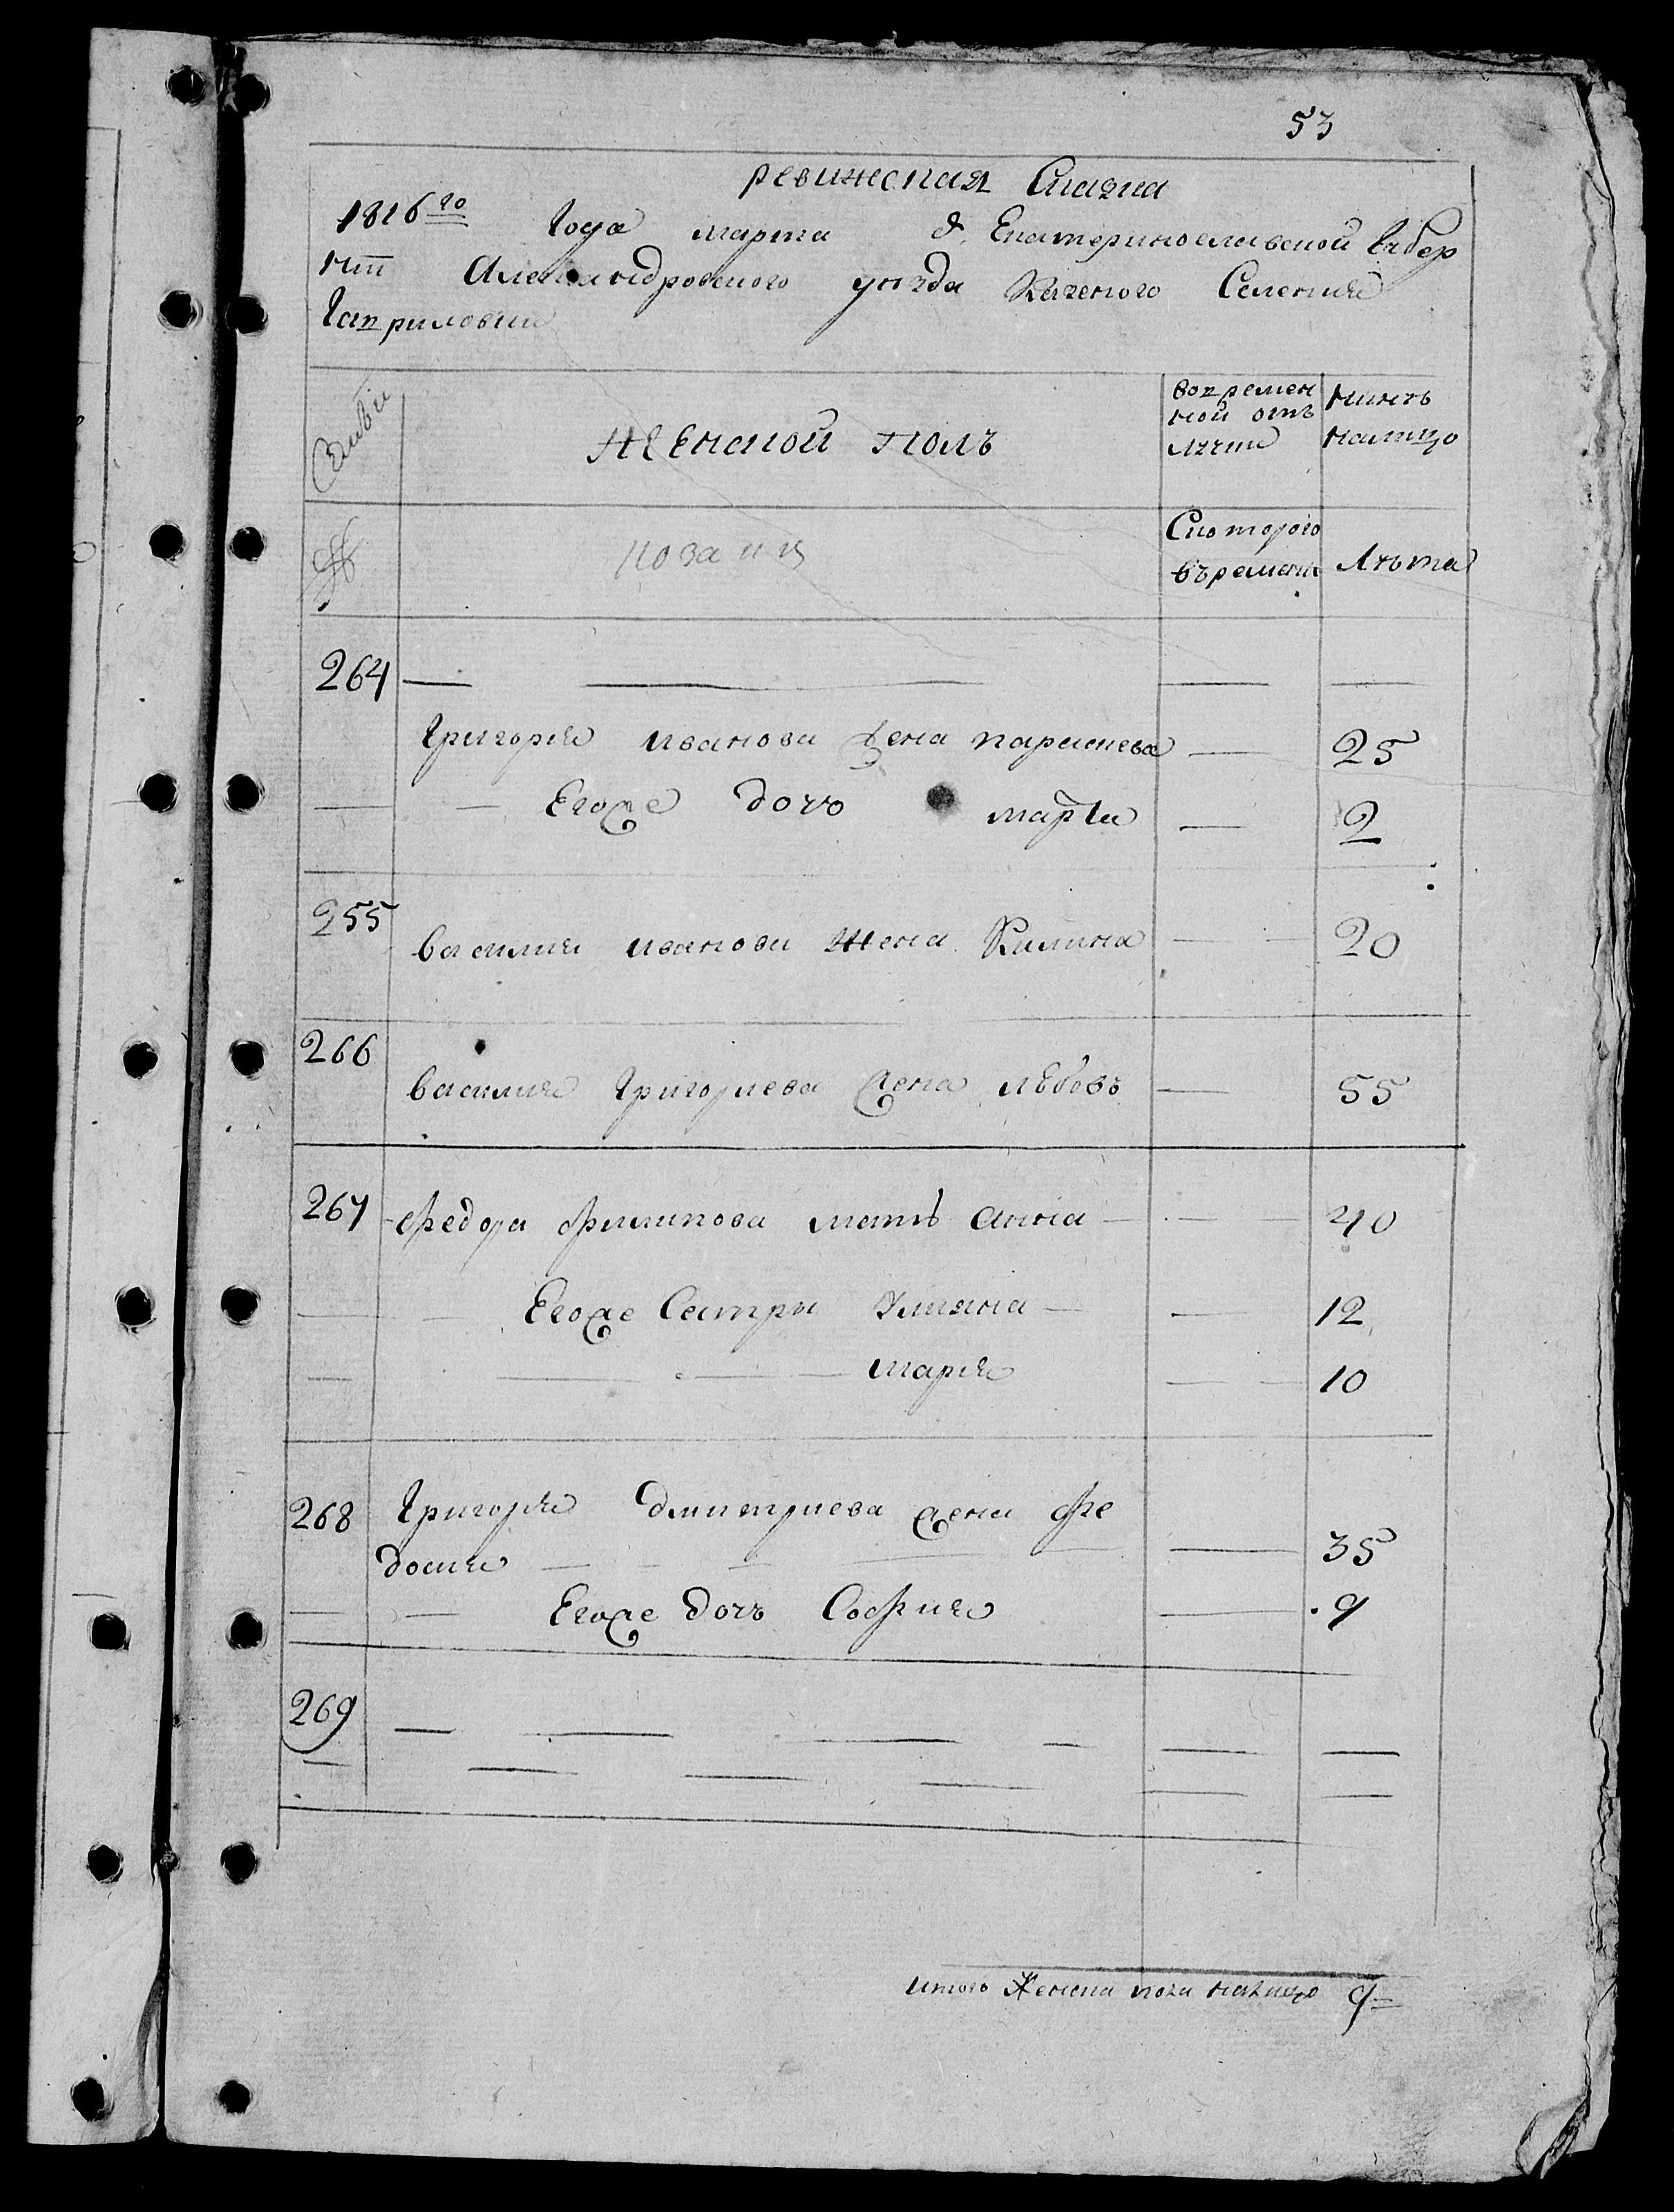 53
ревижская Сказка
1816го Года марта д. Екатеринославской Губер
нїи Александровского уезда Казеного Селения
Гавриловки
Семьи женской полъ вовремен ной отъ лучке ныне налицо
№ Которого времени Лѣта
264 — — — —
Григория иванова жена парасковея — 25
— — Егоже дочъ марфа — 2
255 василия иванова жена Килина — 20
266 василия Григориева жена Любовъ — 55
267 федора филипова мать анна — 40
— — Егоже Сестри Улияна — 12
— — — Мария — 10
268 Григория дмитриева жена фе
досия — 35
— — Егоже дочъ София — 9
269 — — — —
итого женска пола налицо 9